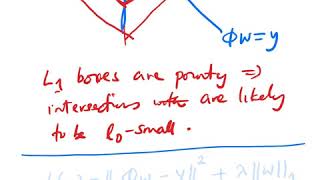 ΦW=y
L₁ boxes are pointy ⇒
intersections are likely
to be l₀-small.
‖ΦW-y‖²+λ‖W‖₁